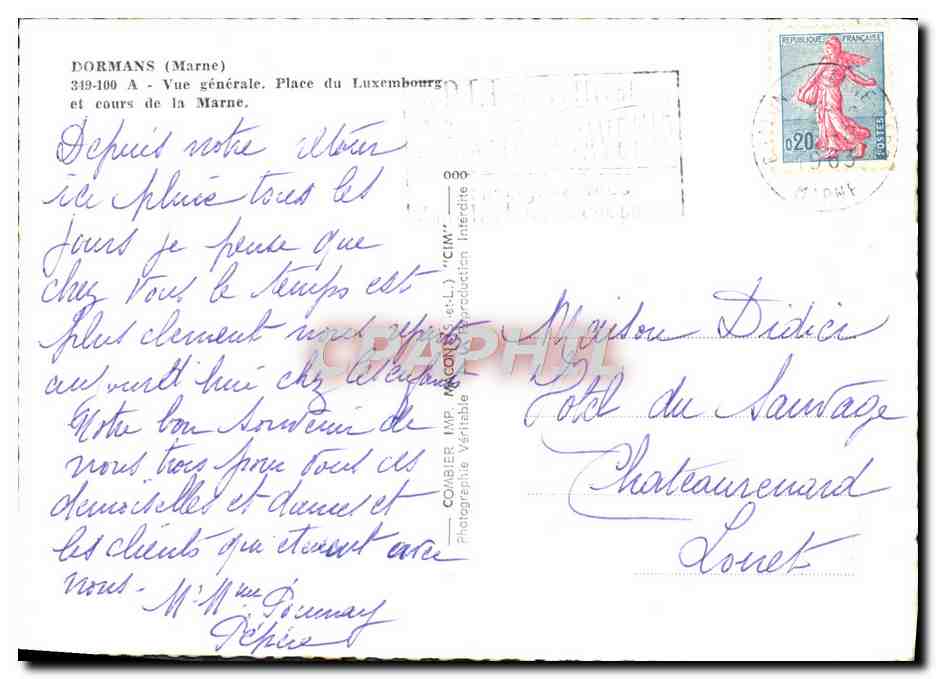 DORMANS (Marne)
349-100 A - Vue générale. Place du Luxembourg
et cours de la Marne.
Depuis notre retour
ici pluie tous les
jours je pense que
chez vous le temps est
plus clement nous
aujourd'hui chez les enfants
Notre bon Souvenir de
nous trois pour vous ces
demoiselles et dames et
les clients qui etaient avec
nous.
Mr Mme
Pépère
COMBIER IMP. MACON (S.-et-L.) "CIM"
Photographie Véritable Reproduction Interdite
REPUBLIQUE FRANÇAISE
0,20
POSTES
Maison Didier
Hotel du Sauvage
Chateaurenard
Loiret
CPAPHIL